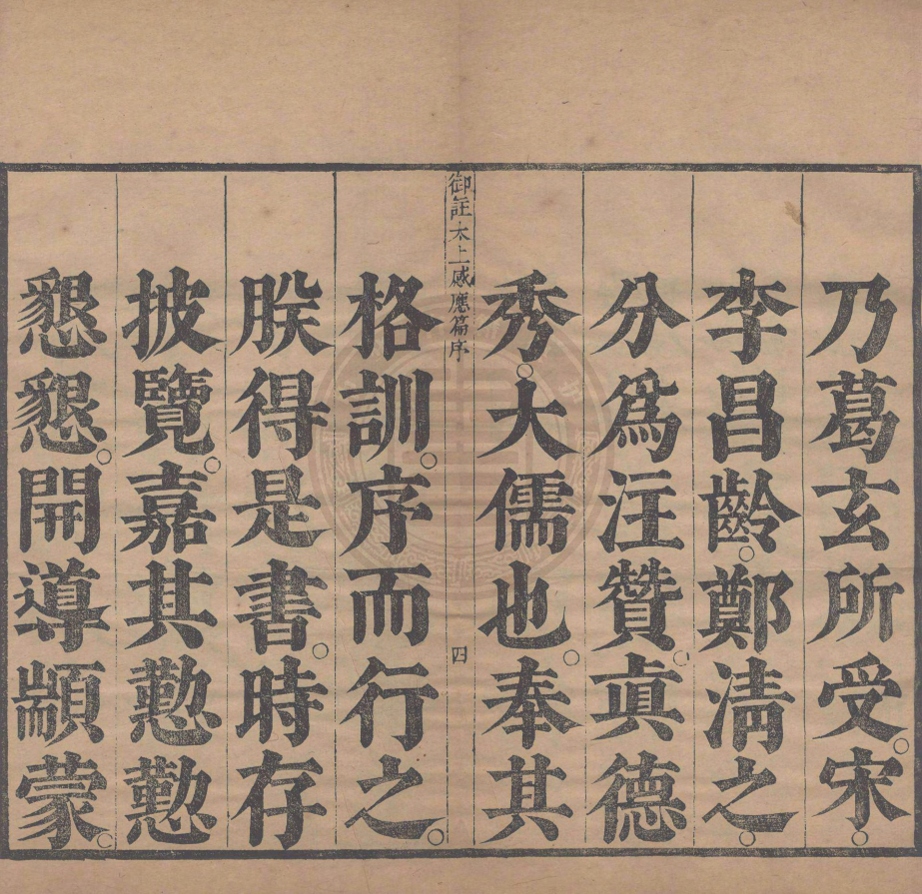 乃葛玄所受○宋○
李昌齡○鄭清之○
分爲注贊○眞德
秀○大儒也○奉其
御註太上感應篇序 四
格訓○序而行之○
朕得是書○時存
披覽○嘉其懃懃
懇懇○開導顓蒙○